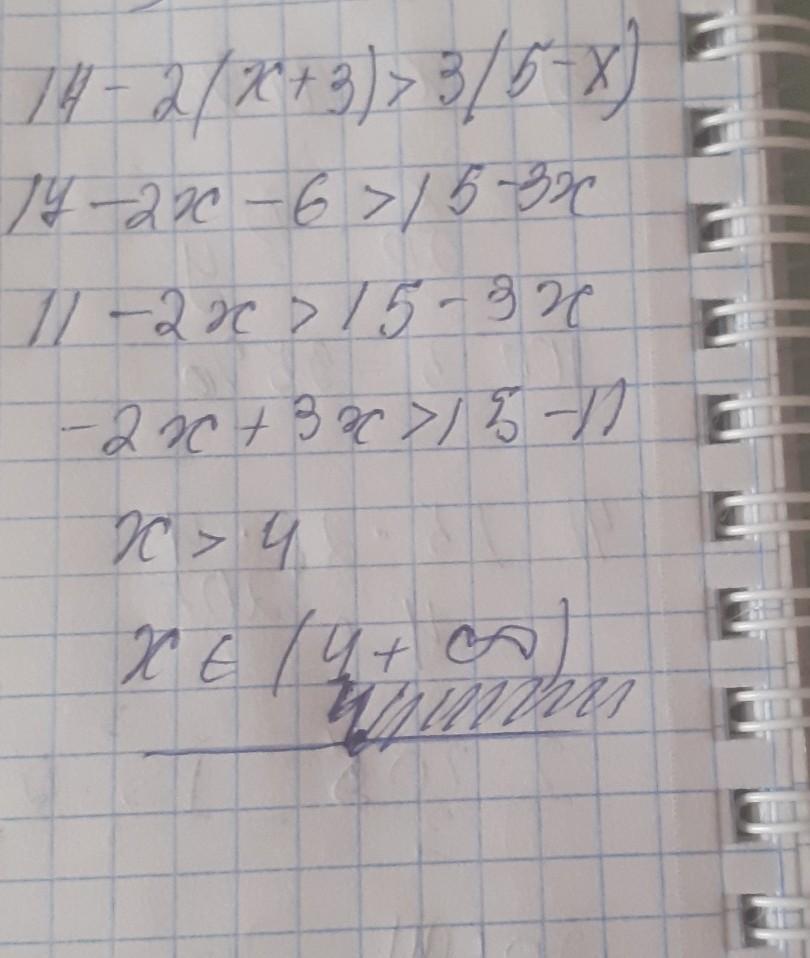 17 - 2(x+3) > 3(5-x)
17 - 2x - 6 > 15 - 3x
11 - 2x > 15 - 3x
-2x + 3x > 15 - 11
x > 4
x ∈ (4 + ∞)
4